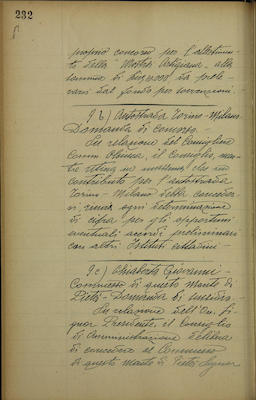 232
proprio concorso per l'allestimen-
to della Mostra Artigiana - alla
somma di da prele-
varsi dal fondo per sovvenzioni.
9 b) Autostrada Torino-Milano
Domanda di concorso. -
Su relazione del Consigliere
Comm. il Consiglio, men-
tre ritiene in massima che un
contributo per l'autostrada
Torino - Milano debba conceder-
si, rinvia ogni determinazione
di cifra per gli opportuni
eventuali accordi preliminari
con altri Istituti cittadini -
9 c) Giovanni -
Commesso di questo Monte di
Pietà - Domanda di sussidio. -
Su relazione dell'On. Si-
gnor Presidente, il Consiglio
di Amministrazione delibera
di concedere al Commesso
di questo Monte di Pietà Signor